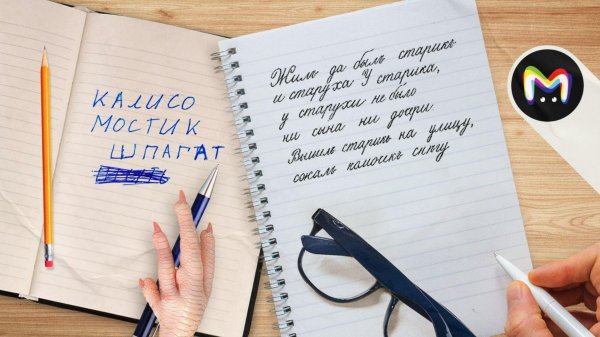 КАЛИСО
МОСТИК
ШПАГАТ
Жилъ да былъ старикъ
и старуха У старика,
у старухи не было
ни сына ни дочри
Вышелъ старикъ на улицу,
сожалъ комочекъ снѣгу
M